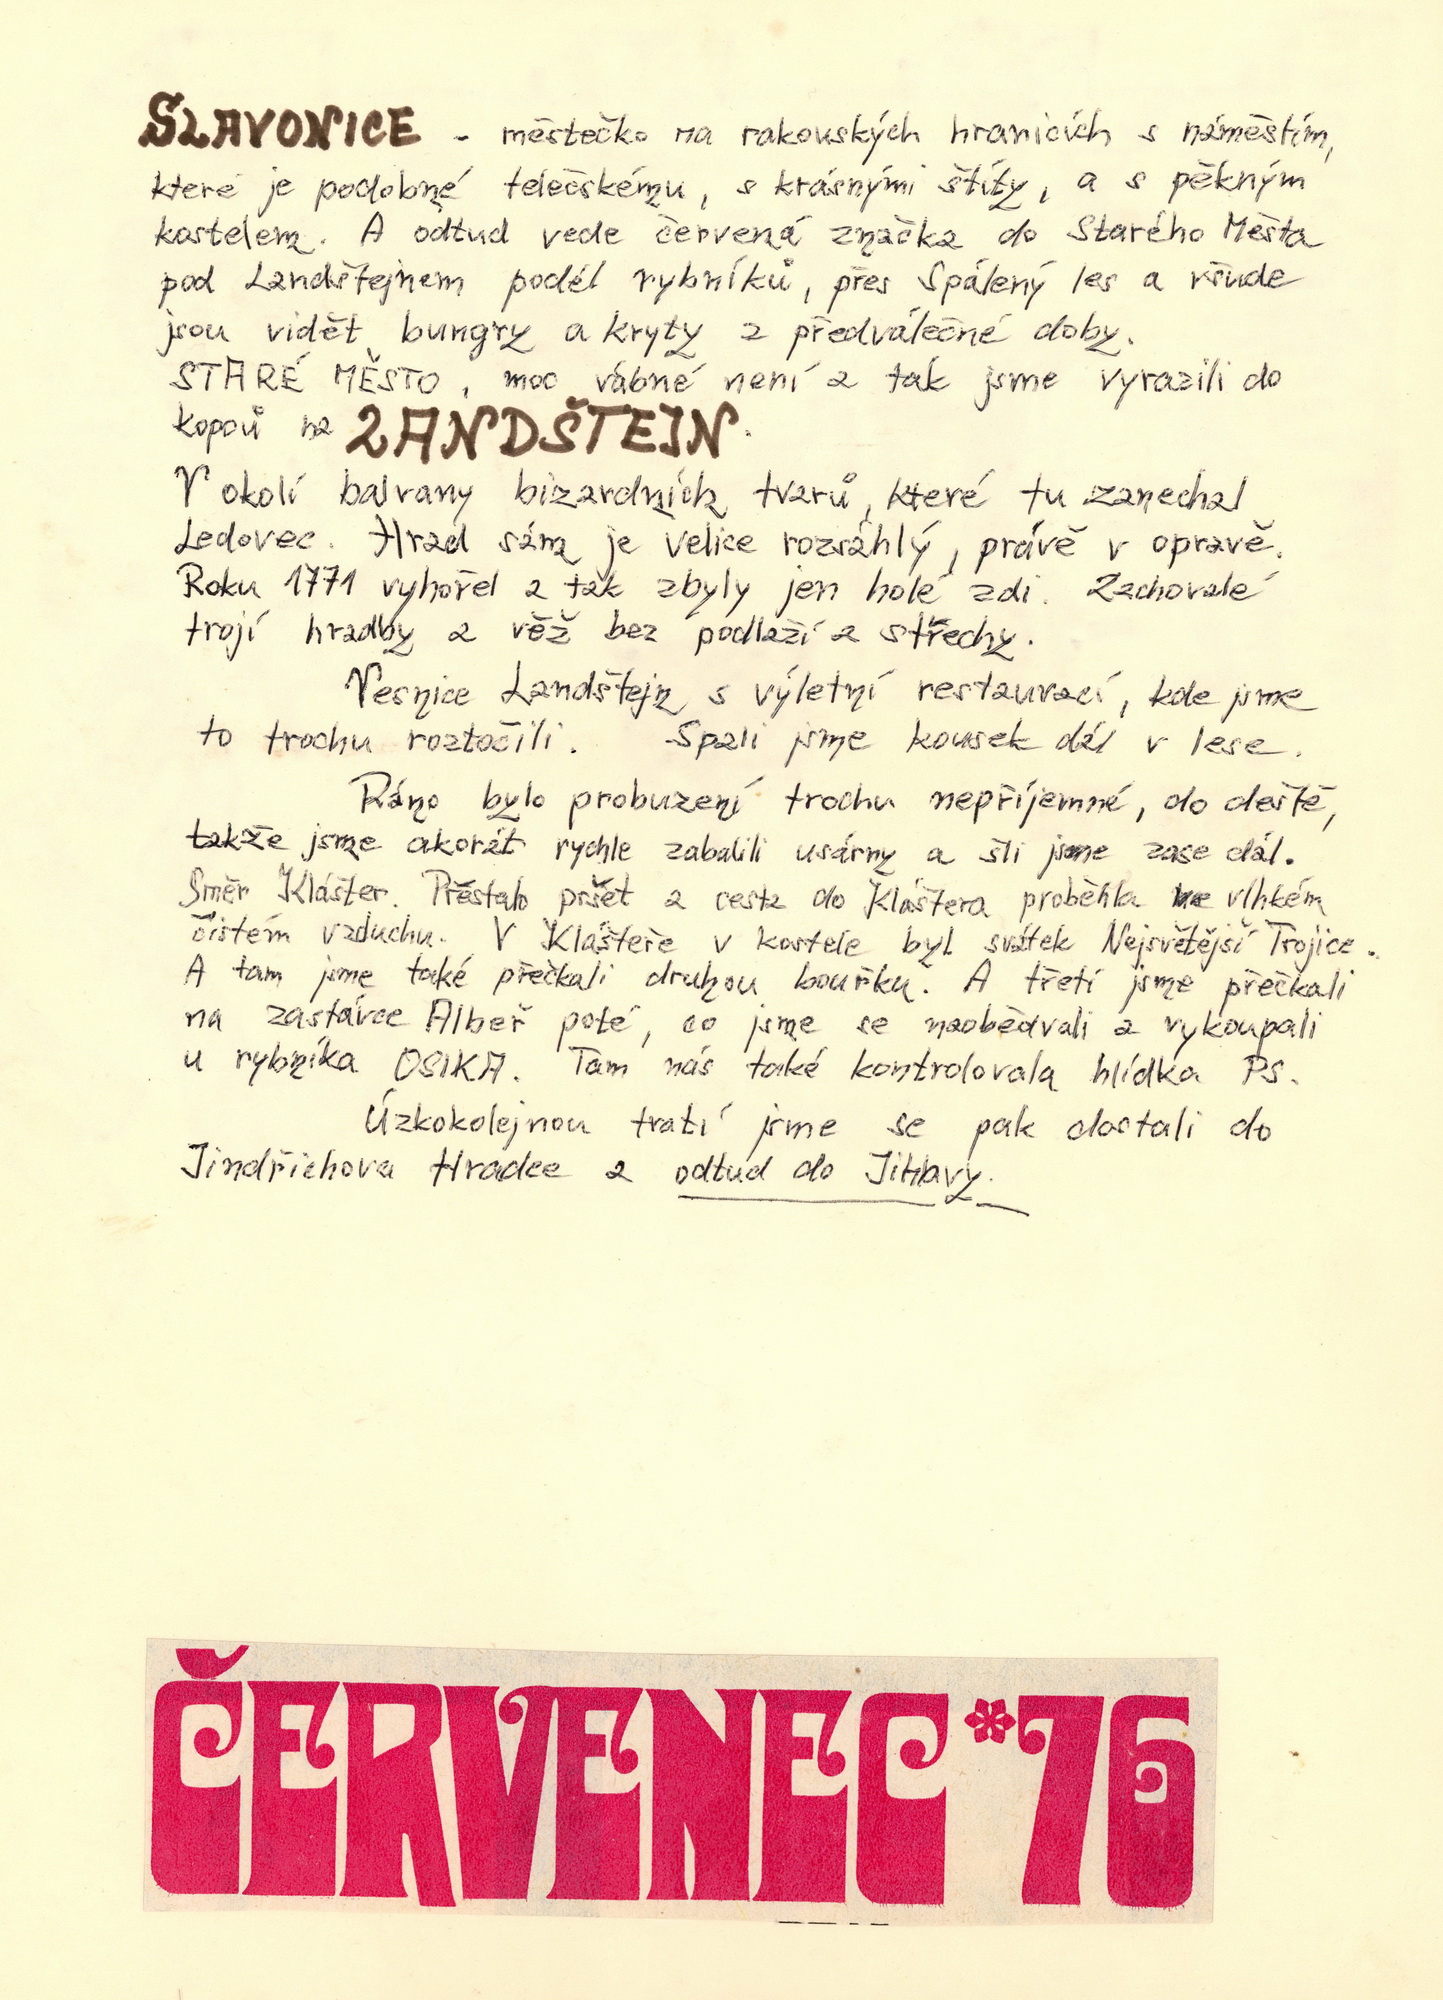 SLAVONICE - městečko na rakouských hranicích s náměstím,
které je podobné telečskému, s krásnými štíty, a s pěkným
kostelem. A odtud vede červená značka do Starého Města
pod Landštejnem podél rybníků, přes Spálený les a všude
jsou vidět bungry a kryty z předválečné doby.
STARÉ MĚSTO, moc vábné není a tak jsme vyrazili do
kopců na LANDŠTEJN.
V okolí balvany bizardních tvarů, které tu zanechal
Ledovec. Hrad sám je velice rozsáhlý, právě v opravě.
Roku 1771 vyhořel a tak zbyly jen holé zdi. Zachovalé
trojí hradby a věž bez podlaží a střechy.
Vesnice Landštejn s výletní restaurací, kde jsme
to trochu roztočili. Spali jsme kousek dál v lese.
Ráno bylo probuzení trochu nepříjemné, do deště,
takže jsme akorát rychle zabalili usárny a šli jsme zase dál.
Směr Klášter. Přestalo pršet a cesta do Kláštera proběhla ve vlhkém
čistém vzduchu. V Klášteře v kostele byl svátek Nejsvětější Trojice.
A tam jsme také přečkali druhou bouřku. A třetí jsme přečkali
na zastávce Albeř poté, co jsme se naobědvali a vykoupali
u rybníka OSIKA. Tam nás také kontrolovala hlídka PS.
Úzkokolejnou tratí jsme se pak dostali do
Jindřichova Hradce a odtud do Jihlavy.
ČERVENEC *76